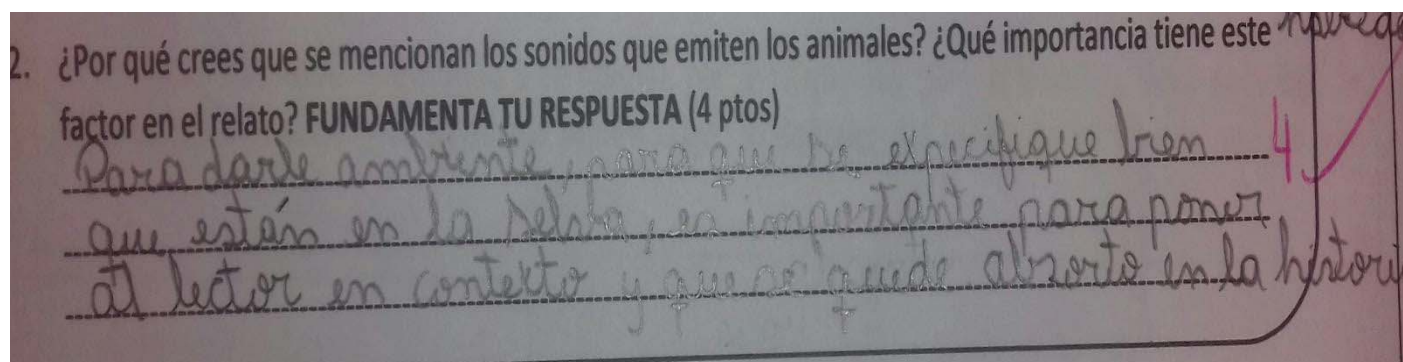 2. ¿Por qué crees que se mencionan los sonidos que emiten los animales? ¿Qué importancia tiene este
factor en el relato? FUNDAMENTA TU RESPUESTA (4 ptos)
Para darle ambiente, para que se especifique bien 4
que están en la selva, es importante para poner
al lector en contexto y que se quede absorto en la histori